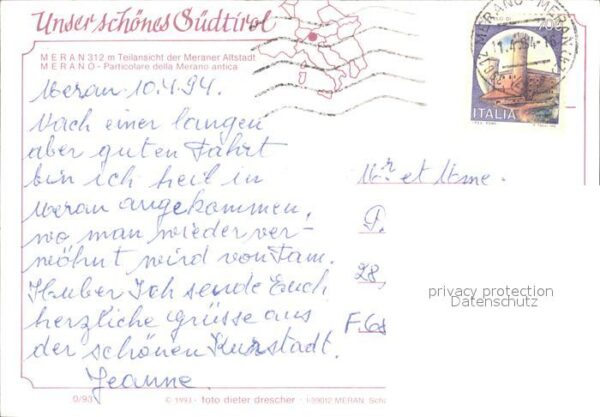 Unser schönes Südtirol
MERAN 312 m Teilansicht der Meraner Altstadt
MERANO - Particolare della Merano antica
Meran 10.4.94.
Nach einer langen
aber guten Fahrt
bin ich heil in
Meran angekommen,
wo man wieder ver-
wöhnt wird von Fam.
Huber Ich sende Euch
herzliche Grüsse aus
der schönen Kurstadt.
Jeanne.
MERANO MERAN
700
ITALIA
Mr et Mme.
P.
28,
F-68
privacy protection
Datenschutz
0/93
© 1993 - foto dieter drescher - I-39012 MERAN